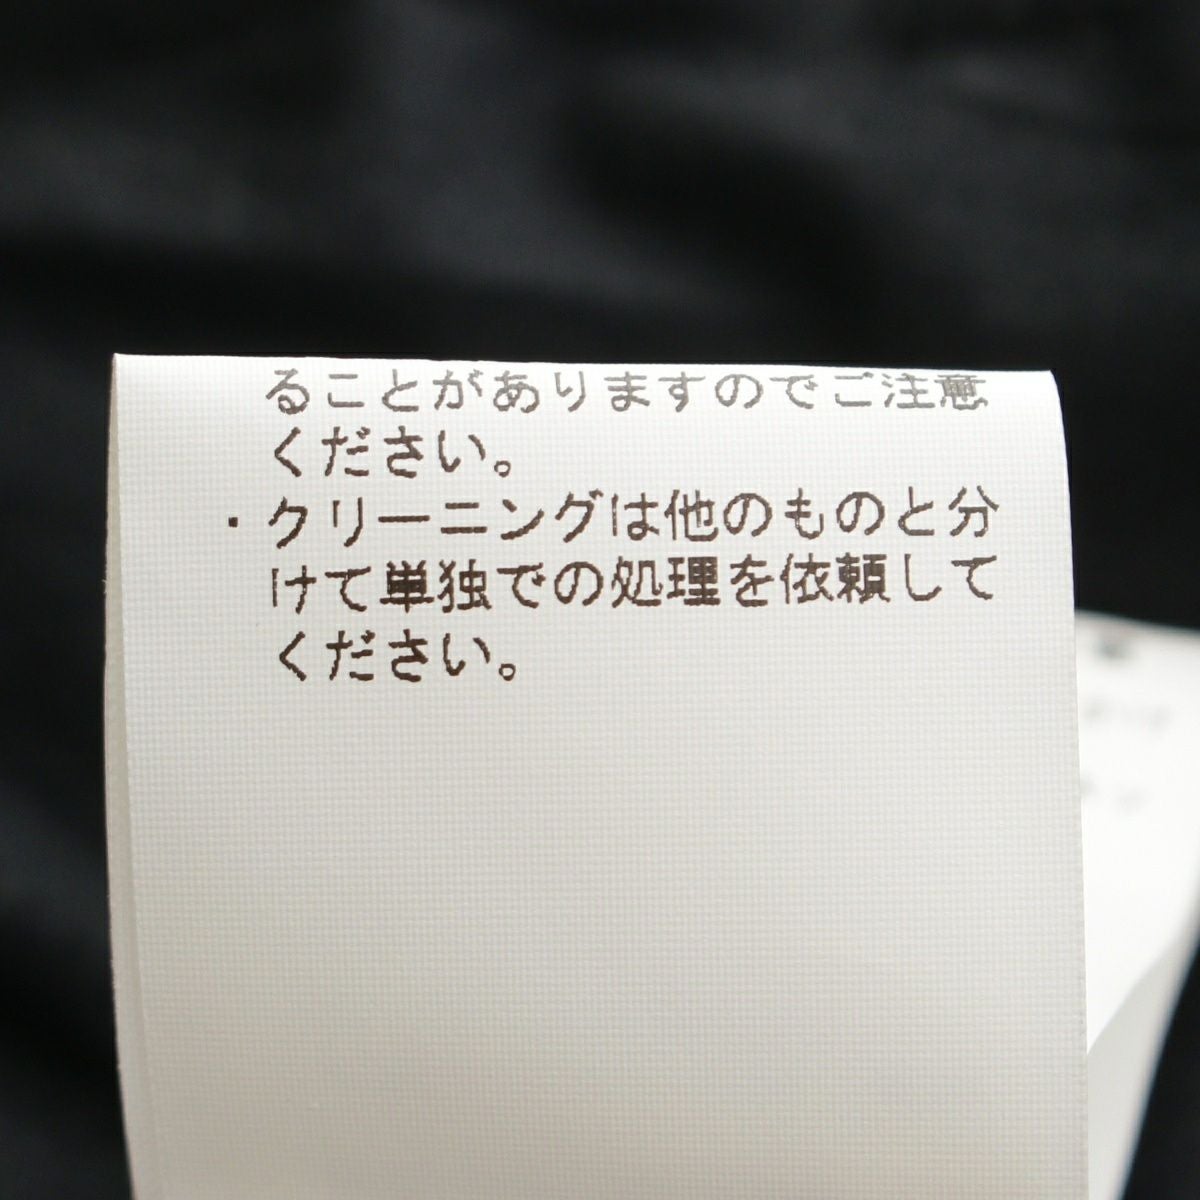 ることがありますのでご注意
ください。
・クリーニングは他のものと分
けて単独での処理を依頼して
ください。